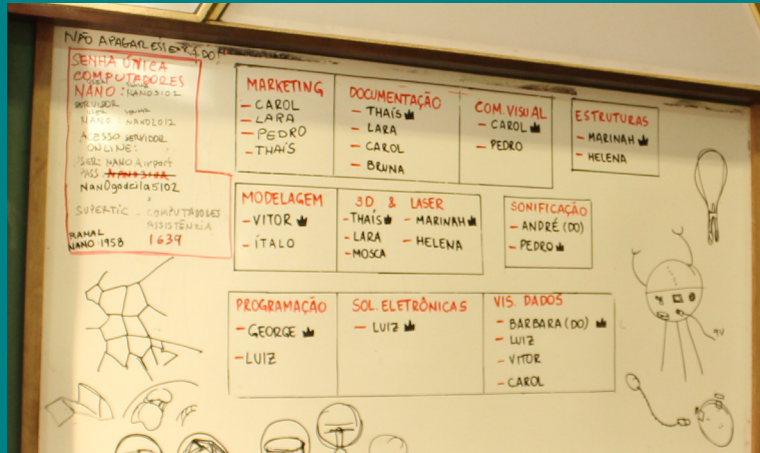 NÃO APAGAR ESSE LADO
SENHA ÚNICA
COMPUTADORES
USER SENHA
NANO: NANO5102
SERVIDOR
USER SENHA
NANO: NANO2012
ACESSO SERVIDOR
ONLINE:
USER: NANO Airport
PASS:
NanOgodcila5102
SUPERTIC - COMPUTADORES
ASSISTÊNCIA
RAMAL
NANO: 1958 1639
MARKETING
- CAROL
- LARA
- PEDRO
- THAÍS
DOCUMENTAÇÃO
- THAÍS
- LARA
- CAROL
- BRUNA
COM. VISUAL
- CAROL
- PEDRO
ESTRUTURAS
- MARINAH
- HELENA
MODELAGEM
- VITOR
- ÍTALO
3D & LASER
- THAÍS - MARINAH
- LARA - HELENA
- MOSCA
SONIFICAÇÃO
- ANDRÉ (DO)
- PEDRO
PROGRAMAÇÃO
- GEORGE
- LUIZ
SOL. ELETRÔNICAS
- LUIZ
VIS. DADOS
- BARBARA (DO)
- LUIZ
- VITOR
- CAROL
9V